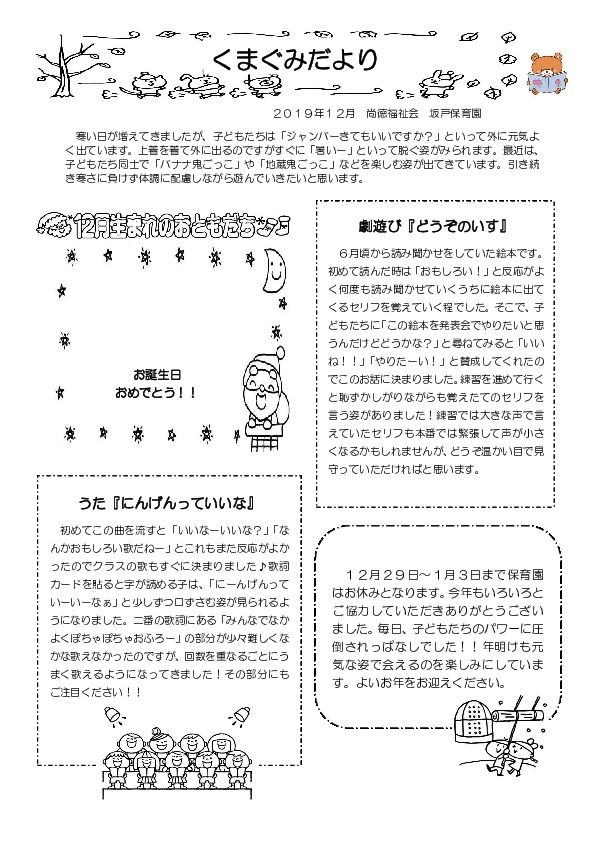 くまぐみだより
２０１９年１２月　尚徳福祉会　坂戸保育園
寒い日が増えてきましたが、子どもたちは「ジャンバーきてもいいですか？」といって外に元気よ
く出ています。上着を着て外に出るのですがすぐに「暑いー」といって脱ぐ姿がみられます。最近は、
子どもたち同士で「バナナ鬼ごっこ」や「地蔵鬼ごっこ」などを楽しむ姿が出てきています。引き続
き寒さに負けず体調に配慮しながら遊んでいきたいと思います。
12月生まれのおともだち
お誕生日
おめでとう！！
劇遊び『どうぞのいす』
６月頃から読み聞かせをしていた絵本です。
初めて読んだ時は「おもしろい！」と反応がよ
く何度も読み聞かせていくうちに絵本に出て
くるセリフを覚えていく程でした。そこで、子
どもたちに「この絵本を発表会でやりたいと思
うんだけどどうかな？」と尋ねてみると「いい
ね！！」「やりたーい！」と賛成してくれたの
でこのお話に決まりました。練習を進めて行く
と恥ずかしがりながらも覚えたてのセリフを
言う姿がありました！練習では大きな声で言
えていたセリフも本番では緊張して声が小さ
くなるかもしれませんが、どうぞ温かい目で見
守っていただければと思います。
うた『にんげんっていいな』
初めてこの曲を流すと「いいなーいいな？」「な
んかおもしろい歌だねー」とこれもまた反応がよか
ったのでクラスの歌もすぐに決まりました♪歌詞
カードを貼ると字が読める子は、「にーんげんって
いーいーなぁ」と少しずつ口ずさむ姿が見られるよ
うになりました。二番の歌詞にある「みんなでなか
よくぽちゃぽちゃおふろー」の部分が少々難しくな
かな歌えなかったのですが、回数を重ねるごとにう
まく歌えるようになってきました！その部分にも
ご注目ください！！
１２月２９日～１月３日まで保育園
はお休みとなります。今年もいろいろと
ご協力していただきありがとうござい
ました。毎日、子どもたちのパワーに圧
倒されっぱなしでした！！年明けも元
気な姿で会えるのを楽しみにしていま
す。よいお年をお迎えください。